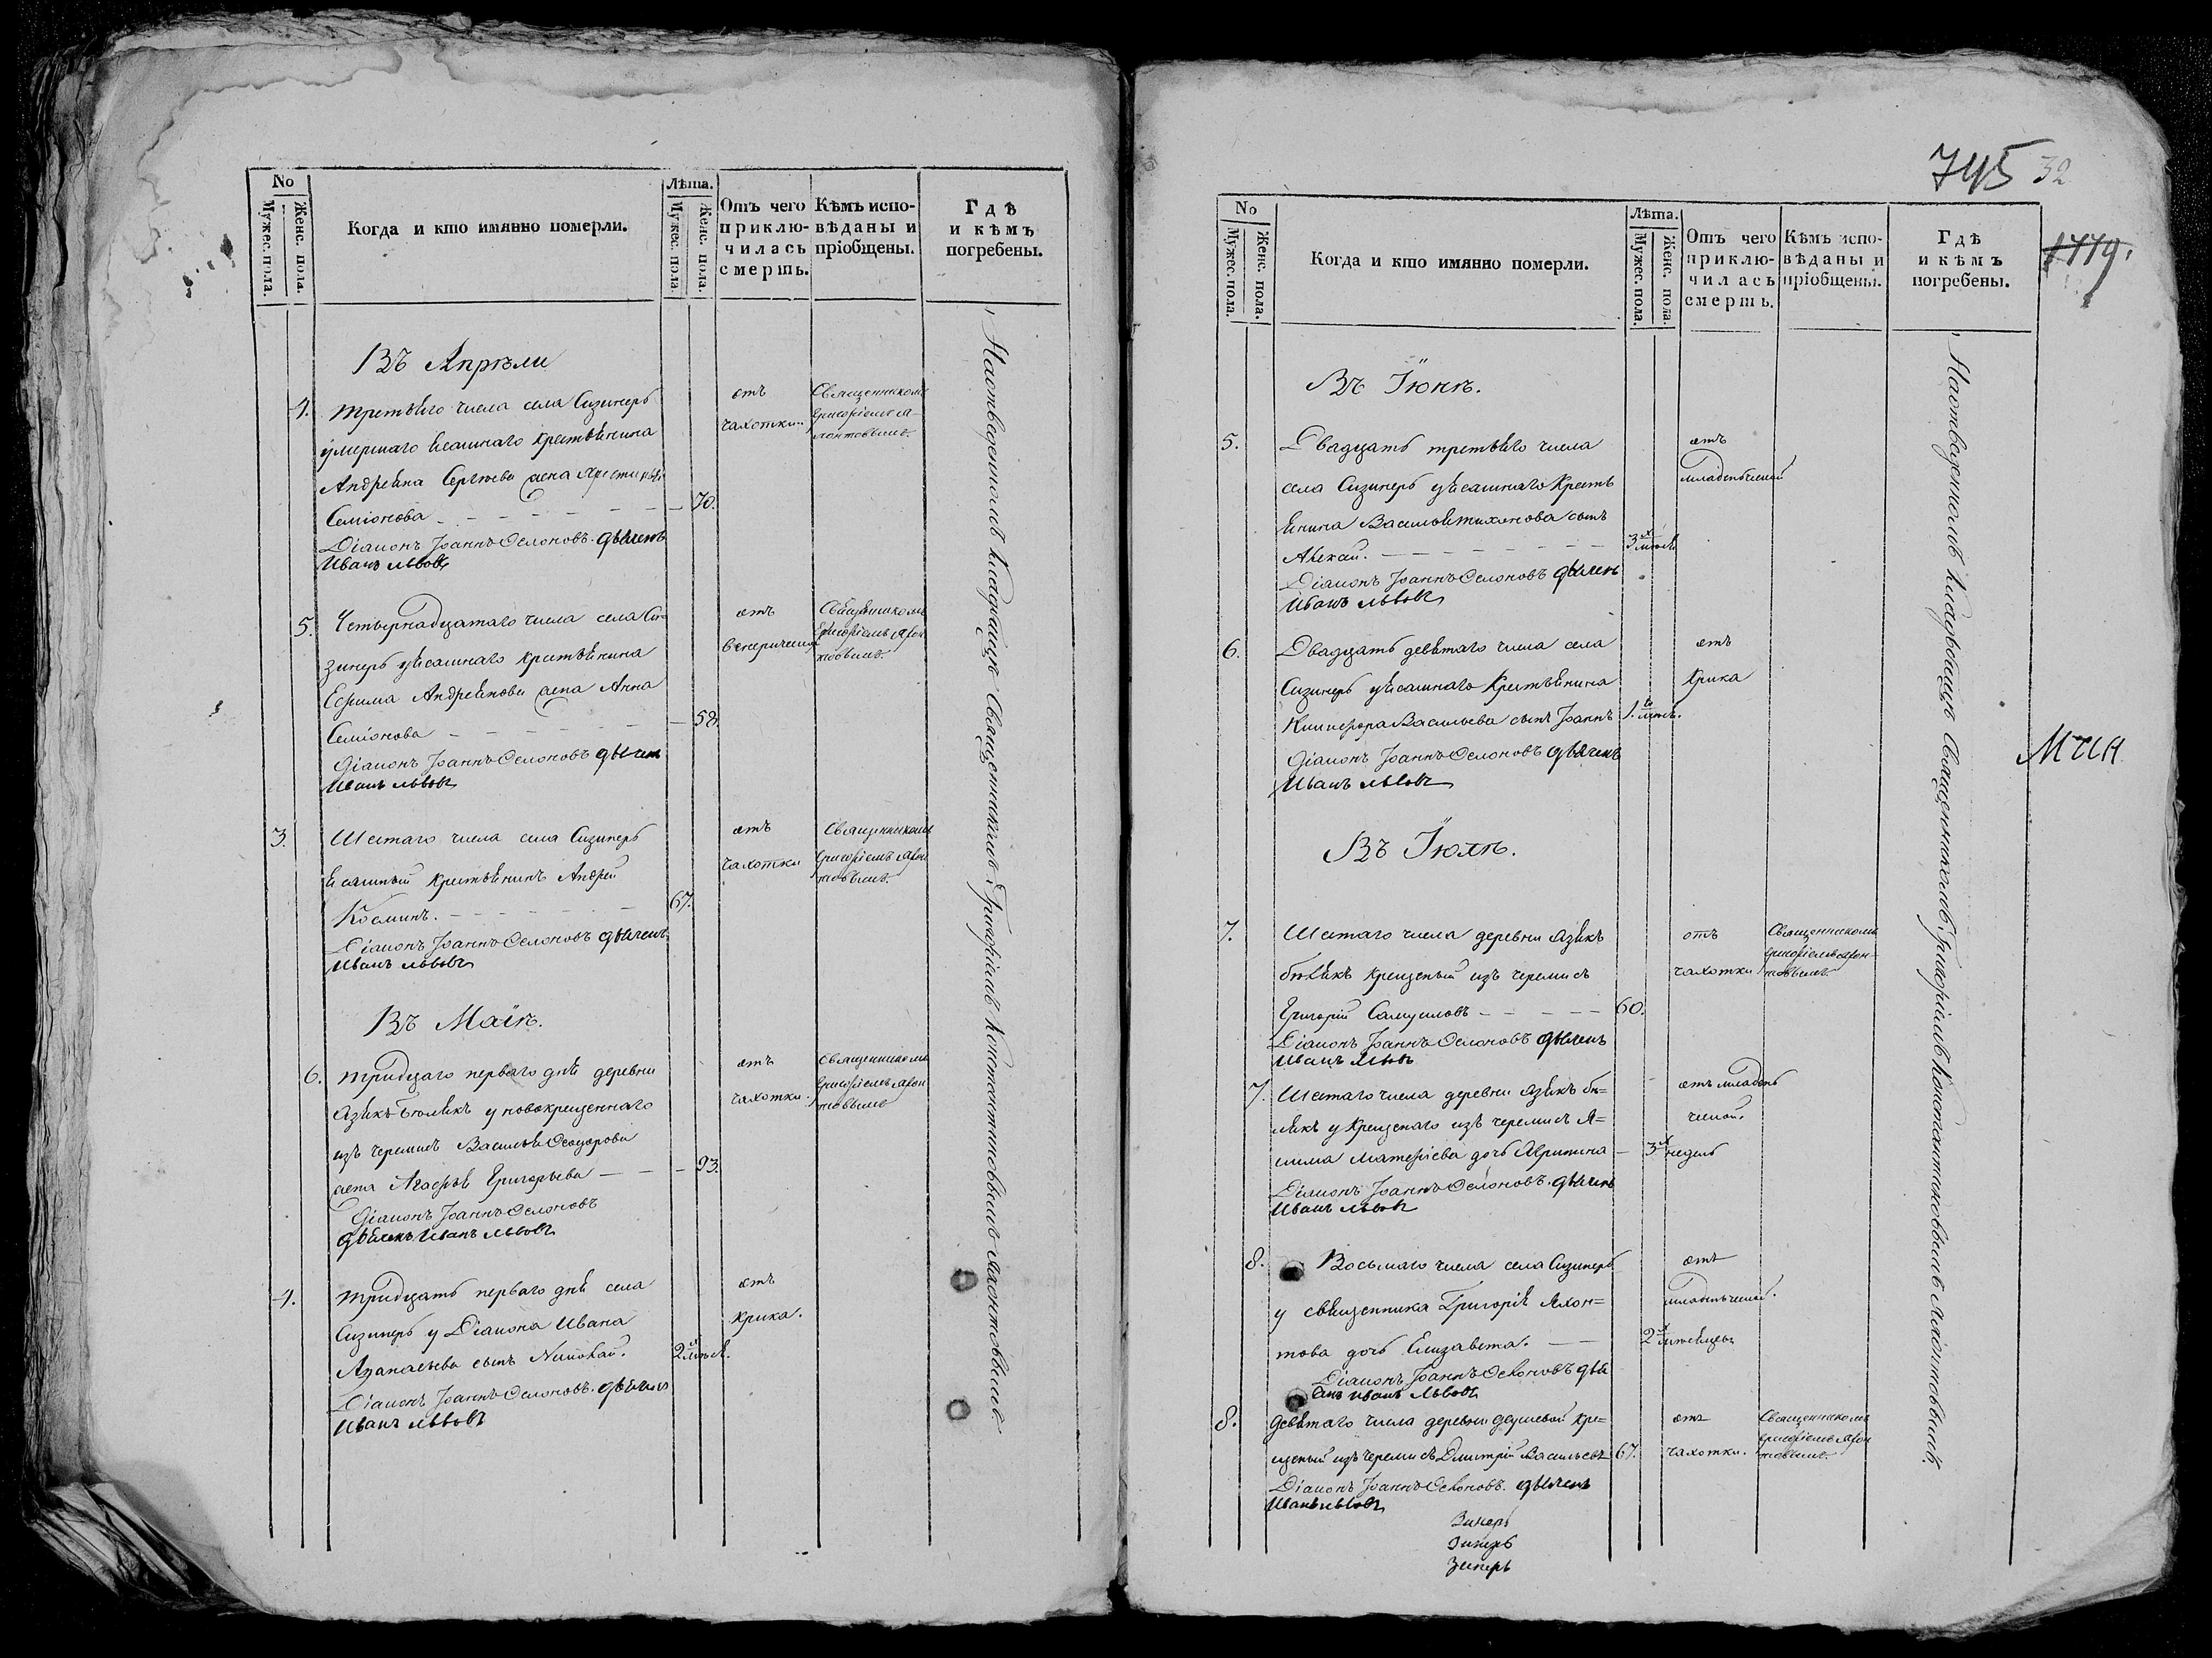 No
Мужес. пола.
Женс. пола.
Когда и кто имянно померли.
Лѣта.
Мужес. пола.
Женс. пола.
Отъ чего
приклю-
чилась
смерть.
Кѣмъ испо-
вѣданы и
пріобщены.
Гдѣ
и кѣмъ
погребены.
Въ Апрѣли
4. третьяго числа села Сизинеръ
умершаго ясашнаго крестьянина
Андреяна Сергѣева жена
Семіонова - - - 70.
Діаконъ Іоаннъ дьячекъ
Иванъ Львовъ
отъ
чахотки
Священникомъ
Григоріемъ
5. Четырнадцатаго числа села Си-
зинеръ у ясашнаго крестьянина
Ефима Андреянова жена Анна
Семіонова - - - 58.
Діаконъ Іоаннъ дьячекъ
Иванъ Львовъ
отъ
венерической
Священникомъ
Григоріемъ
3. Шестаго числа села Сизинеръ
ясашный крестьянинъ Андрей
Козминъ. - - - 67.
Діаконъ Іоаннъ дьячекъ
Иванъ Львовъ
отъ
чахотки
Священникомъ
Григоріемъ
Въ Маіѣ.
6. тридцаго перваго дня деревни
у новокрещеннаго
изъ черемисъ Василья Ѳеодорова
жена Агафья Григорьева - - - 93.
Діаконъ Іоаннъ
дьячекъ Иванъ Львовъ
отъ
чахотки.
Священникомъ
Григоріемъ
4. тридцать перваго дня села
Сизинеръ у Діакона Ивана
сынъ Николай. 2
Діаконъ Іоаннъ дьячекъ
Иванъ Львовъ
отъ
крика.
На отведенномъ кладбищѣ Священникомъ Григоріемъ Константиновымъ
745 32
1779.
No
Мужес. пола.
Женс. пола.
Когда и кто имянно померли.
Лѣта.
Мужес. пола.
Женс. пола.
Отъ чего
приклю-
чилась
смерть.
Кѣмъ испо-
вѣданы и
пріобщены.
Гдѣ
и кѣмъ
погребены.
Въ Іюнѣ.
5. Двадцать третьяго числа
села Сизинеръ у ясашнаго крестъ
янина Василья Тихонова сынъ
- - - 3
Діаконъ Іоаннъ дьячекъ
Иванъ Львовъ
отъ
младенческой
6. Двадцать девятаго числа села
Сизинеръ у ясашнаго крестьянина
Никифора Васильева сынъ Іоаннъ 1.
Діаконъ Іоаннъ дьячекъ
Иванъ Львовъ
отъ
крика
Въ Іюлѣ.
7. Шестаго числа деревни Азякъ
бѣлякъ крещеный изъ черемисъ
Григорій Самуиловъ - - - 60.
Діаконъ Іоаннъ дьячекъ
Иванъ Львовъ
отъ
чахотки
Священникомъ
Григоріемъ
7. Шестаго числа деревни Азякъ бѣ=
лякъ у крещенаго изъ черемисъ Я=
кима дочь Акрипина - 3 недель
Діаконъ Іоаннъ дьячекъ
Иванъ Львовъ
отъ младен
ческой.
8. Восьмаго числа села Сизинеръ
у священника Григорія
това дочь Елизавета. - 2
Діаконъ Іоаннъ дья
чекъ Иванъ Львовъ
отъ
младенческой.
8. девятаго числа деревни кре=
щеный изъ черемисъ Дмитрій Васильевъ 67.
Діаконъ Іоаннъ дьячекъ
Иванъ Львовъ
отъ
чахотки.
Священникомъ
Григоріемъ
На отведенномъ кладбищѣ Священникомъ Григоріемъ Константиновымъ